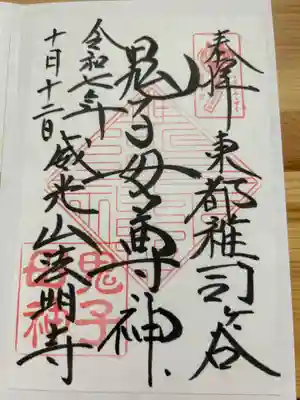 奉拝
東都雑司ヶ谷
鬼子母尊神
令和七年
十月十二日
威光山法明寺
鬼子
母神